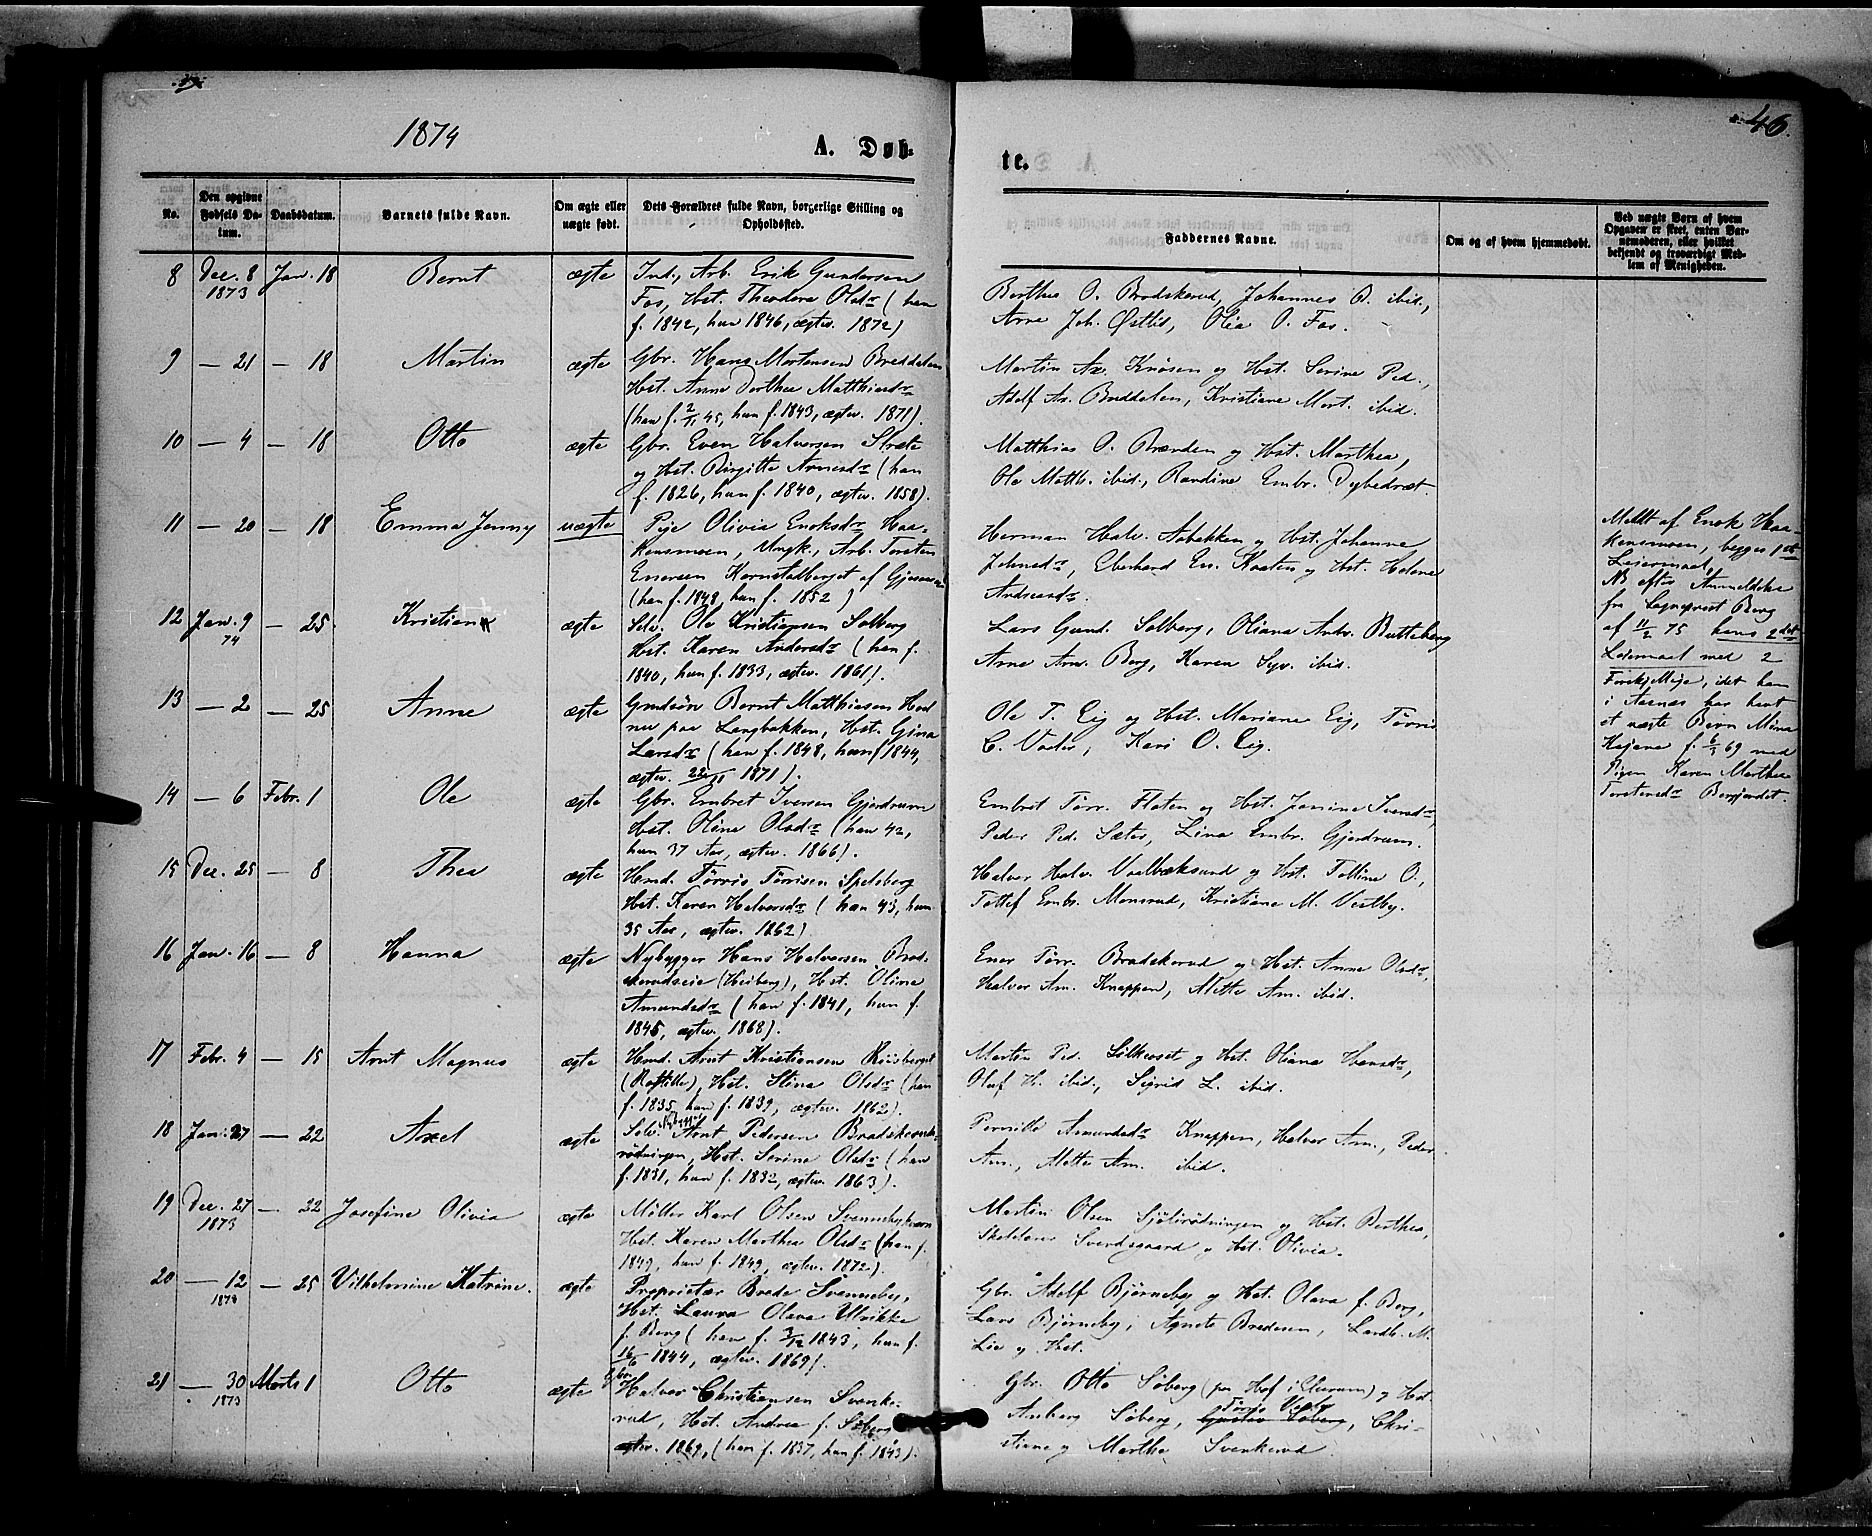 46.
1874
A. Døb-
te.
No.
Den opgivne Fødsels Datum.
Daabsdatum.
Barnets fulde Navn.
Om ægte eller uægte født.
Dets Forældres fulde Navn, borgerlige Stilling og Opholdssted.
Faddernes Navne.
Om og af hvem hjemmedøbt.
Ved uægte Børn af hvem Opgaven er skeet, enten Barnemoderen, eller hvilket bekjendt og troværdigt Medlem af Menigheden.
8 Dec. 8 1873 Jan. 18 Bernt ægte Ind., Arb. Erik Gundersen
Fos, Hst. Theodora Olsdr (han
f. 1842, hun 1846, ægtev. 1872)
Berthe O. Brodskerud, Johannes B. ibid.,
Arne Joh. Østlid, Olia O. Fos.
9 — 21 — 18 Martin ægte Gbr. Hans Mortensen Breddalen
Hst. Anne Dorthea Matthiasdr
(han f. 2/11 45, hun f. 1843, ægtev. 1871).
Martin Ax. Knøsen og Hst. Serine Ped.,
Adolf A. Breddalen, Kristiane Mort. ibid.
10 — 4 — 18 Otto ægte Gbr. Even Halvorsen Stræte
og Hst. Birgitte Arnesdr (han
f. 1826, hun f. 1840, ægtev. 1858).
Matthias O. Brænden og Hst. Marthea,
Ole Matth. ibid., Randine Embr. Dybedræt.
11 — 20 — 18 Emma Jenny uægte Pige Olivia Enoksdr Haa-
kensmoen, Ungk., Arb. Torsten
Enersen Kornstadberget af Gjesaasen
(han f. 1848, hun f. 1852)
Herman Halv. Aabakken og Hst. Johanne
Johnsdr, Eberhard En. Kaaten og Hst. Helene
Andreasdr.
Meldt af Enok Haa-
kensmoen, begges 1ste
Leiermaal,
NB efter Anmeldelse
fra Sogneprest Borg
af 11/2 75 hans 2det
Leiermaal med 2
Forskjellige, idet han
i Aasnes har havt
et uægte Barn Mina
Kajane f. 6/3 69 med
Pigen Karen Marthea
Torstensdr Bergjordet.
12 Jan. 9 74 — 25 Kristian ægte Selv. Ole Kristiansen Solberg
Hst. Karen Andersdr (han f.
1840, hun f. 1833, ægtev. 1861).
Lars Gund. Solberg, Oliana Andr. Butteberg
Arne Arn. Berg, Karen Syv. ibid.
13 — 2 — 25 Anne ægte Grudsøn Bernt Matthiasen Hver-
nu paa Langbakken, Hst. Gina
Larsdr (han f. 1848, hun f 1844,
ægtev. 22/11 1871).
Ole T. Eig og Hst. Mariane Eig, Tørris
C. Vaaler, Kari O. Eig.
14 — 6 Febr. 1 Ole ægte Gbr. Embret Iversen Gjerdrum
Hst. Oline Olsdr (han 42,
hun 37 Aar, ægtev. 1866).
Embret Tørr. Flaten og Hst. Janine Iversdr,
Peder Ped. Sæter, Lina Embr. Gjerdrum.
15 Dec. 25 — 8 Thea ægte Hmd. Tørris Tørrisen Spelsberg
Hst. Karen Halvorsdr (han 43, hun
35 Aar, ægtev. 1862)
Halvor Halv. Vaalbæksund og Hst. Tolline O.,
Tollef Embr. Monsrud, Kristiane M. Vestby.
16 Jan. 16 — 8 Hanna ægte Nybygger Hans Halvorsen Brod-
skerudseie (Heiberg), Hst. Oline
Amundsdr (han f. 1841, hun f.
1845, ægtev. 1868).
Ener Tørr. Bradskerud og Hst. Anne Olsdr,
Halvor Am. Knappen, Mette Am. ibid.
17 Febr. 4 — 15 Arnt Magnus ægte Hmd. Arnt Kristiansen Riisberget
Hst. Stina Olsdr (han
f. 1835, hun f. 1839, ægtev. 1862).
Martin Ped. Silkeset og Hst. Oliana Hansdr,
Oluf H. ibid., Sigrid L. ibid.
18 Jan. 27 — 22 Axel ægte Selv. Nybygger Arnt Pedersen Bradskerud-
rødningen, Hst. Serine Olsdr (han
f. 1831, hun f. 1832, ægtev. 1863).
Pernille Amundsdr Knappen, Halvor Am., Peder
Am., Mette Am. ibid.
19 Dec. 27 1873 — 22 Josefine Olivia ægte Møller Karl Olsen Svennebykværn
Hst. Karen Marthea Olsdr (han f.
1849, hun f. 1849, ægtev. 1872).
Martin Olsen Sjølirødningen og Hst. Berthea,
Skolelærer Sverdsgaard og Hst. Olivia.
20 — 12 1874 — 25 Vilhelmine Katrine. ægte Proprietær Brede Svenneby,
Hst. Laura Olava Ulrikke
f. Berg (han f. 3/12 1843, hun f.
16/6 1844, ægtev. 1869).
Gbr. Adolf Bjørneby og Hst. Olava f. Berg,
Lars Bjørneby, Agnete Bredesen, Landh. M.
Lie og Hst.
21 — 30 1873 Marts 1 Otto ægte Gbr. Halvor Christiansen Svenke-
rud, Hst. Andrea f. Søberg
ægtev. 1869, (han f. 1837, hun f. 1843).
Gbr. Otto Søberg (paa Hof i Elverum) og Hst.
Amberg Søberg, Gustav Søberg, Chri-
stiane og Marthe Svenkerud